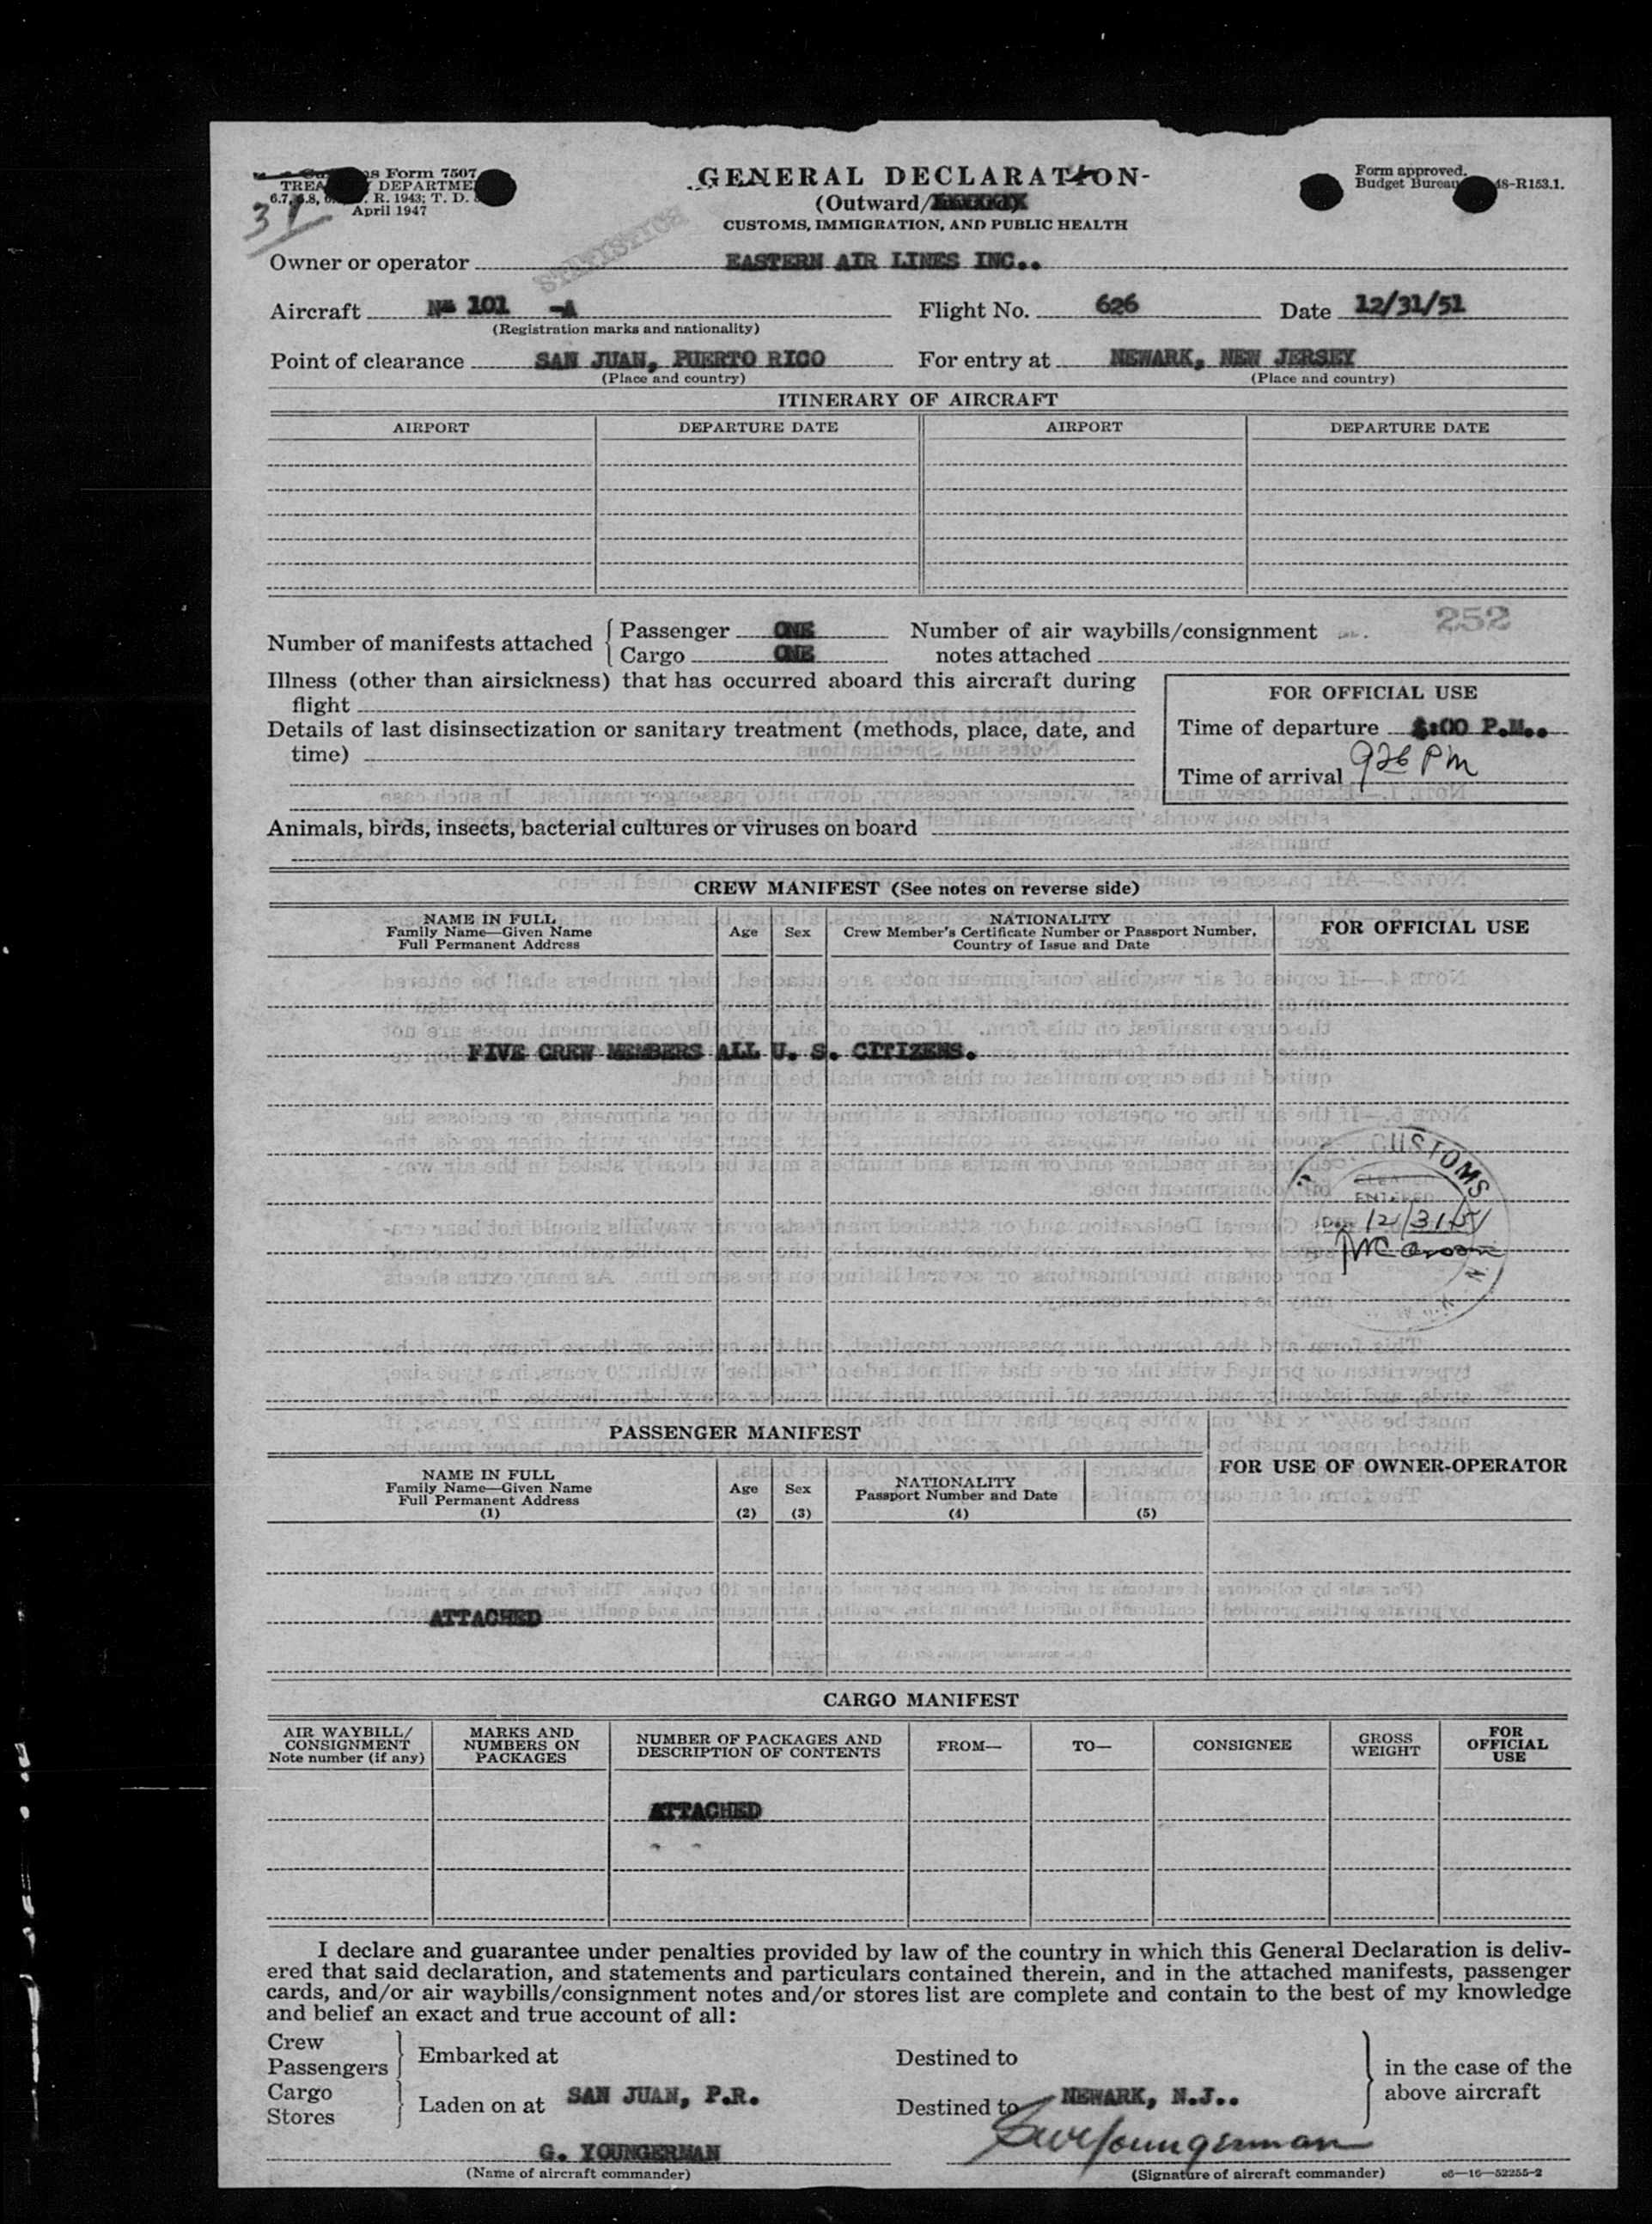 Form 7507
DEPARTME
R. 1943; T. D.
April 1947
31
GENERAL DECLARATION
(Outward/
CUSTOMS, IMMIGRATION, AND PUBLIC HEALTH
Form approved.
Budget Bureau 48-R153.1.
STATISTICS
Owner or operator EASTERN AIR LINES INC..
Aircraft 101 -A Flight No. 626 Date 12/31/51
(Registration marks and nationality)
Point of clearance SAN JUAN, PUERTO RICO For entry at NEWARK, NEW JERSEY
(Place and country) (Place and country)
ITINERARY OF AIRCRAFT
AIRPORT DEPARTURE DATE AIRPORT DEPARTURE DATE
252
Number of manifests attached Passenger ONE Number of air waybills/consignment
Cargo ONE notes attached
Illness (other than airsickness) that has occurred aboard this aircraft during
flight
Details of last disinsectization or sanitary treatment (methods, place, date, and
time)
FOR OFFICIAL USE
Time of departure :00 P.M..
Time of arrival 926 PM
Animals, birds, insects, bacterial cultures or viruses on board
CREW MANIFEST (See notes on reverse side)
NAME IN FULL
Family Name—Given Name
Full Permanent Address
Age
Sex
NATIONALITY
Crew Member's Certificate Number or Passport Number,
Country of Issue and Date
FOR OFFICIAL USE
FIVE CREW MEMBERS ALL U. S. CITIZENS.
CUSTOMS
ENTERED
12/31/51
PASSENGER MANIFEST
NAME IN FULL
Family Name—Given Name
Full Permanent Address
(1)
Age
(2)
Sex
(3)
NATIONALITY
Passport Number and Date
(4)
(5)
FOR USE OF OWNER-OPERATOR
ATTACHED
CARGO MANIFEST
AIR WAYBILL/
CONSIGNMENT
Note number (if any)
MARKS AND
NUMBERS ON
PACKAGES
NUMBER OF PACKAGES AND
DESCRIPTION OF CONTENTS
FROM—
TO—
CONSIGNEE
GROSS
WEIGHT
FOR
OFFICIAL
USE
ATTACHED
I declare and guarantee under penalties provided by law of the country in which this General Declaration is deliv-
ered that said declaration, and statements and particulars contained therein, and in the attached manifests, passenger
cards, and/or air waybills/consignment notes and/or stores list are complete and contain to the best of my knowledge
and belief an exact and true account of all:
Crew
Passengers
Embarked at Destined to
in the case of the
above aircraft
Cargo
Stores
Laden on at SAN JUAN, P.R. Destined to NEWARK, N.J..
G. YOUNGERMAN Youngerman
(Name of aircraft commander) (Signature of aircraft commander) c6—16—52255-2